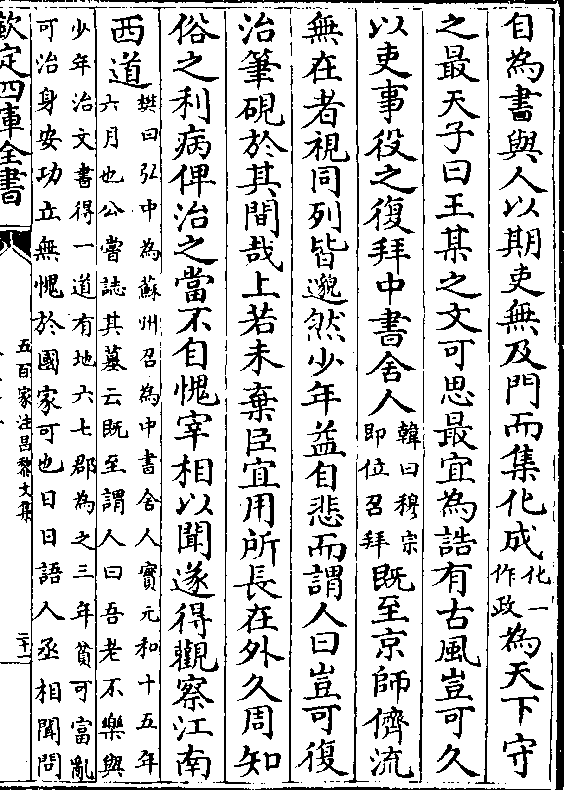 自為書與人以期吏無及門而集化成化一作政為天下守
之最天子曰王某之文可思最宜為誥有古風豈可久
以吏事役之復拜中書舍人韓曰穆宗即位召拜既至京師儕流
無在者視同列皆邈然少年益自悲而謂人曰豈可復
治筆硯於其間哉上若未棄臣宜用所長在外久周知
俗之利病俾治之當不自愧宰相以聞遂得觀察江南
西道樊曰弘中為蘇州召為中書舍人實元和十五年六月也公嘗誌其墓云既至謂人曰吾老不樂與
少年治文書得一道有地六七郡為之三年貧可富亂
可治身安功立無愧於國家可也日日語人丞相聞問
欽定四庫全書
五百家注昌黎文集